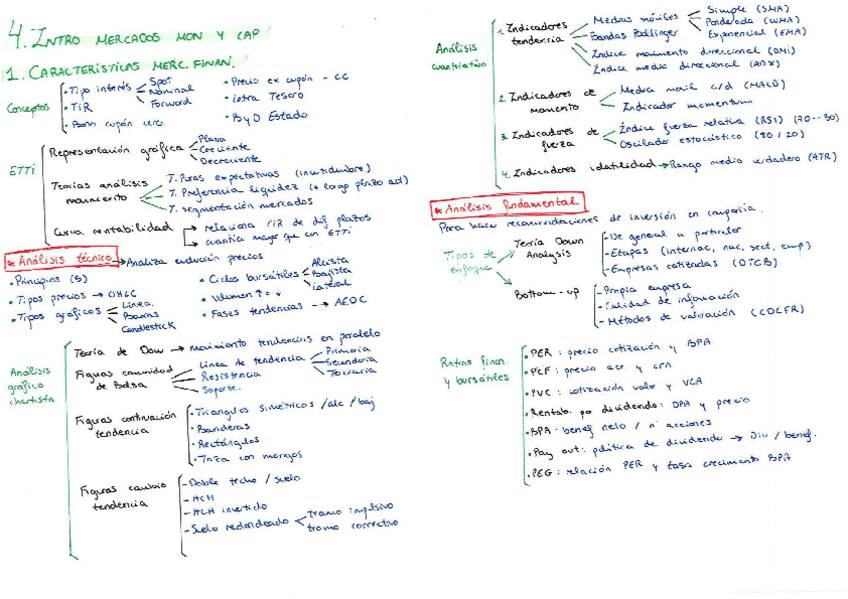 4. INTRO MERCADOS MON Y CAP
1. CARACTERÍSTICAS MERC. FINAN.
Conceptos
• Tipo interés
Spot
Nominal
Forward
• TIR
• Bono cupón cero
• Precio ex cupón - CC
• Letra Tesoro
• B y O Estado
ETTI
Representación gráfica
Plana
Creciente
Decreciente
Teorías análisis movimiento
T. Puras expectativas (incertidumbre)
T. Preferencia liquidez
T. segmentación mercados
Curva rentabilidad
relaciona TIR de dif plazos
cuantía mayor que con ETTI
* Análisis técnico → Analiza evolución precios
• Principios (5)
• Tipos precios → OHLC
• Tipos gráficos
Línea
Barras
Candlestick
• Ciclos bursátiles
Alcista
Bajista
Lateral
• Volumen ↑ = ↓
• Fases tendencias → AEDC
Análisis gráfico chartista
Teoría de Dow → movimiento tendencias en paralelo
Figuras comunidad de Bolsa
Línea de tendencia
Primaria
Secundaria
Terciaria
Resistencia
Soporte
Figuras continuación tendencia
• Triangulos simétricos / alc / baj
• Banderas
• Rectángulos
• Taza con mangos
Figuras cambio tendencia
- Doble techo / suelo
- HCH
- HCH invertido
- Suelo redondeado
tramo impulsivo
tramo correctivo
Análisis cuantitativo
1. Indicadores tendencia
Medias móviles
Simple (SMA)
Ponderada (WMA)
Exponencial (EMA)
Bandas Bollinger
Índice movimiento direccional (DMI)
Índice medio direccional (ADX)
2. Indicadores de momento
Media movil c/d (MACD)
Indicador momentum
3. Indicadores de fuerza
Índice fuerza relativa (RSI) (70--30)
Oscilador estocástico (80/20)
4. Indicadores volatilidad → Rango medio verdadero (ATR)
* Análisis fundamental
Para hacer recomendaciones de inversión en compañía.
Tipos de enfoque
Teoría Down Analysis
- De general a particular
- Etapas (internac, nac, sect, emp)
- Empresas cotizadas
Bottom-up
- Propia empresa
- Calidad de información
- Métodos de valoración
Ratios finan. y bursátiles
• PER: precio cotización y BPA
• PCF: precio acc y
• PVC: cotización valor y VCA
• Rentab. por dividendo: DPA y precio
• BPA: benef neto / nº acciones
• Pay out: política de dividendo → Div / benef.
• PEG: relación PER y tasa crecimiento BPA